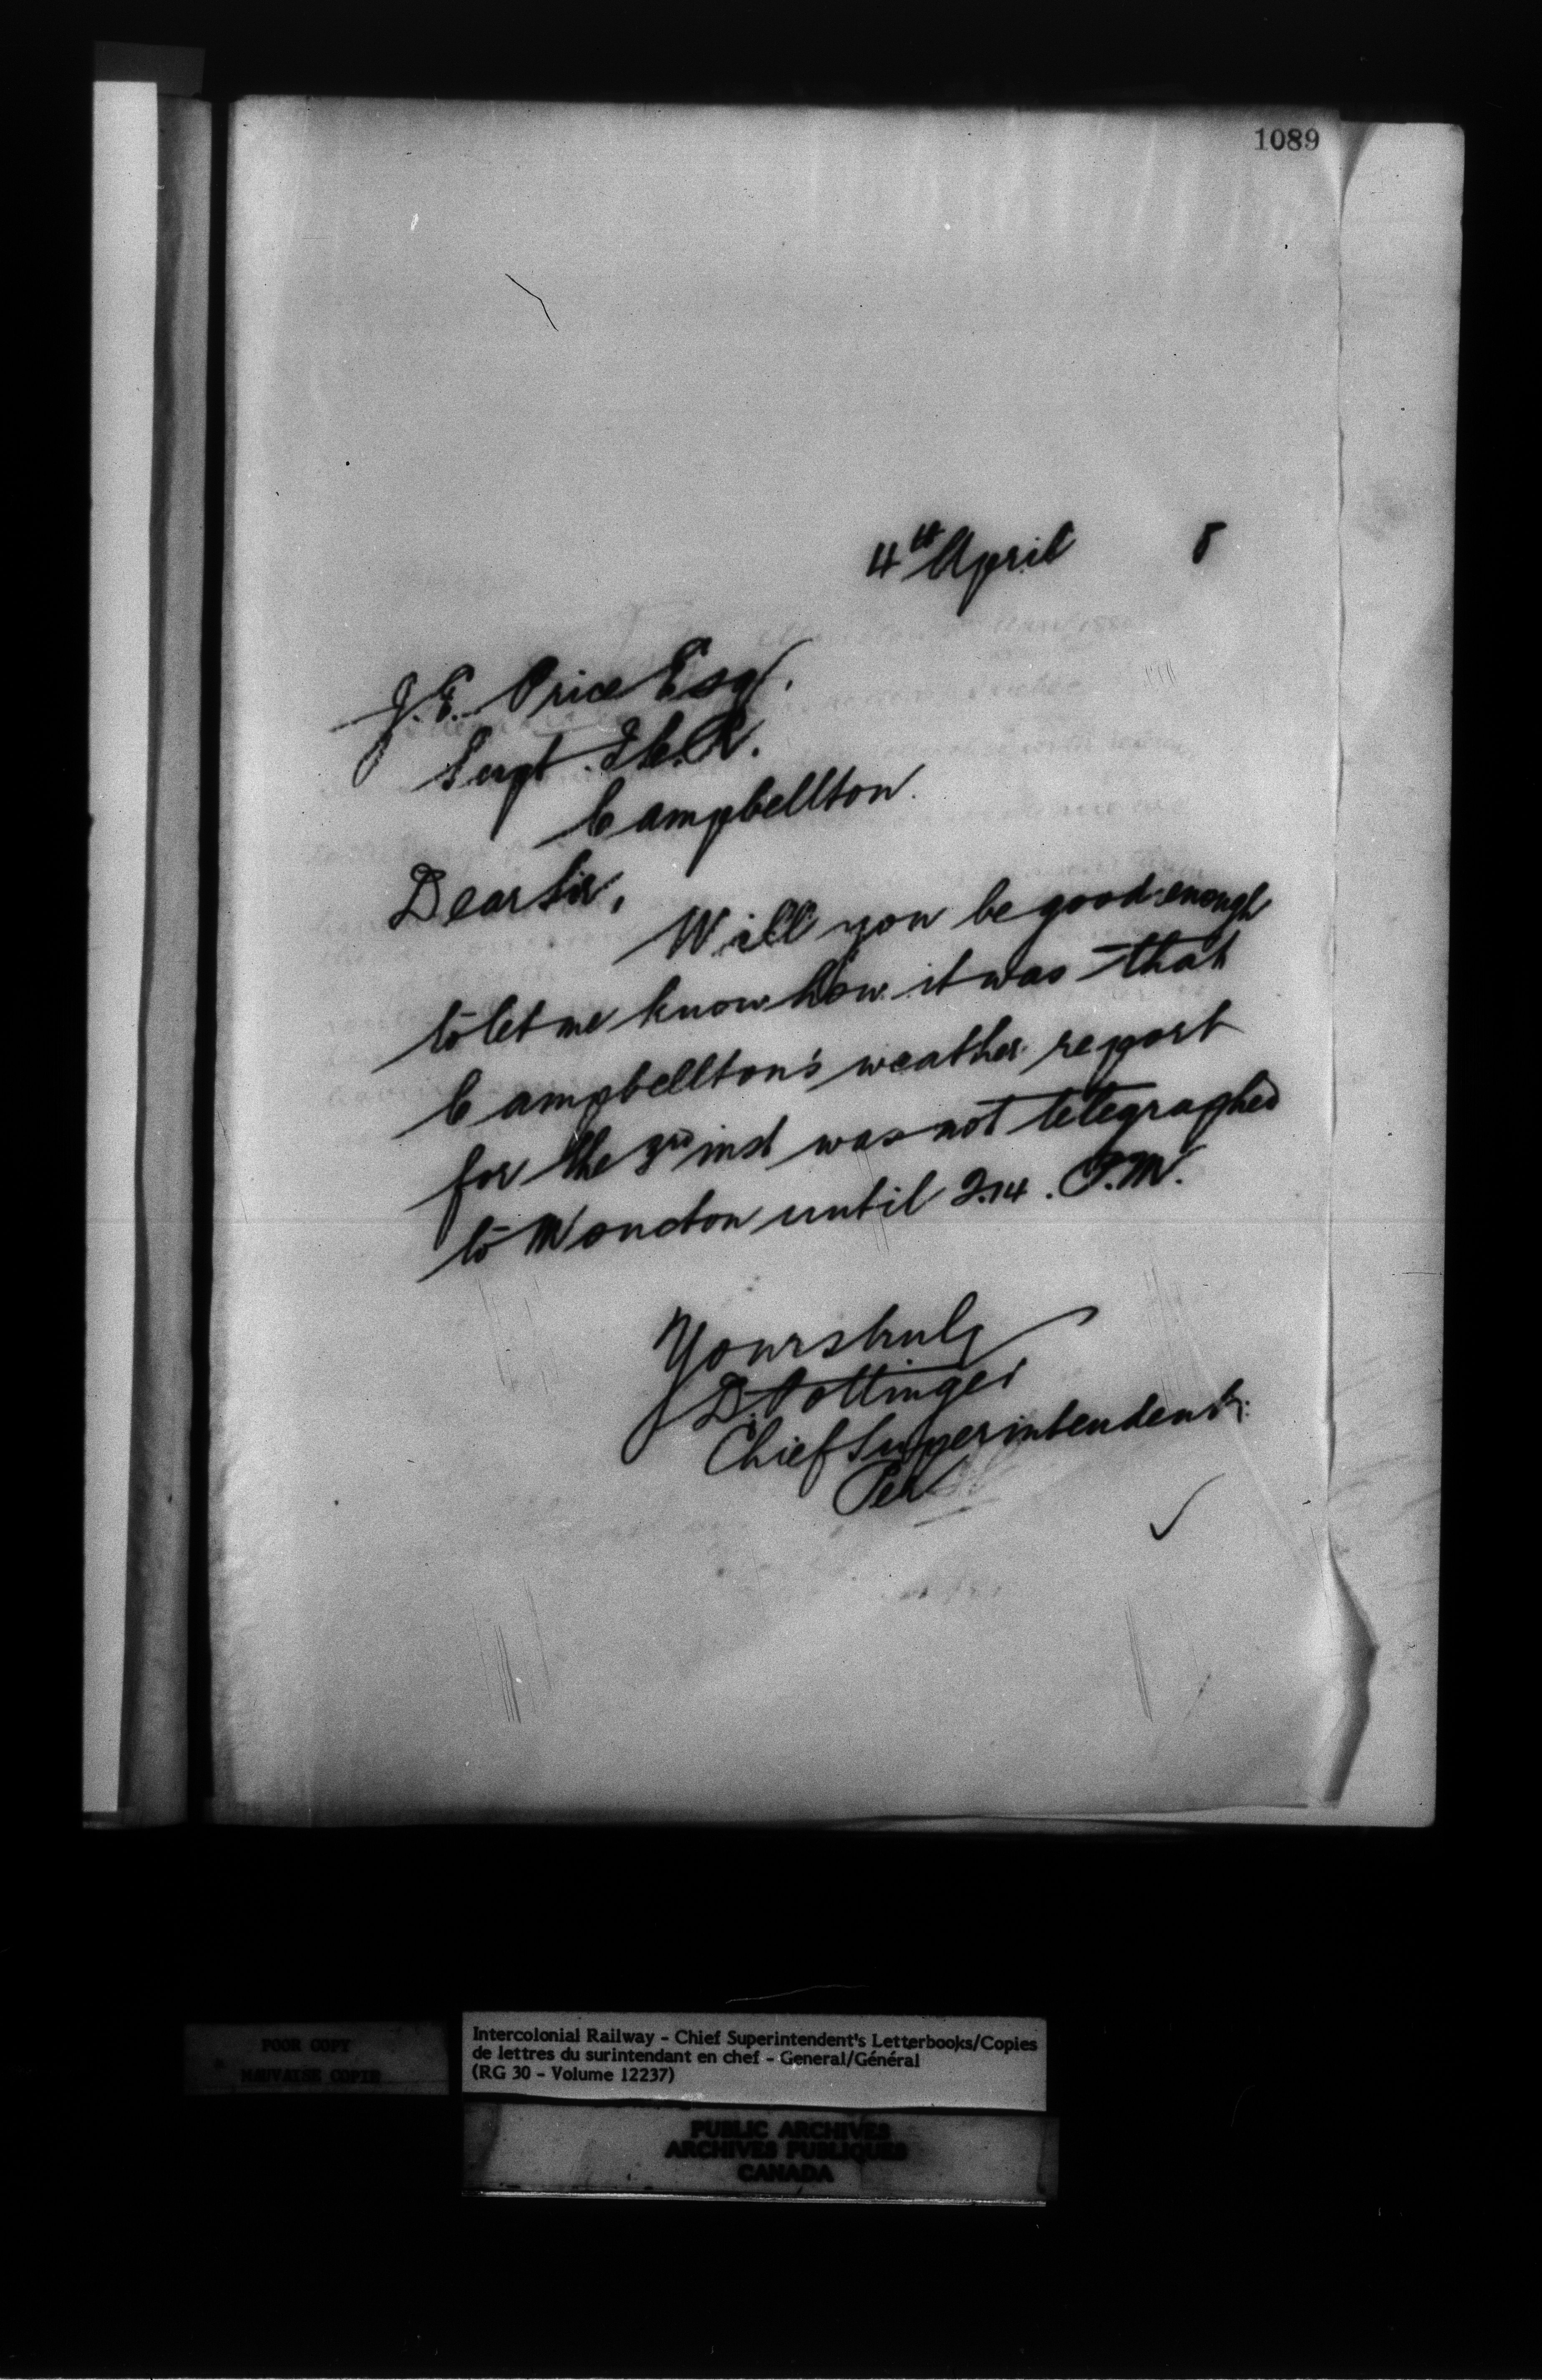 1089
4th April 8
J. E. Price Esq.
Supt. I.C.R.
Campbellton.
Dear Sir,
Will you be good enough
to let me know how it was that
Campbellton's weather report
for the 3rd inst was not telegraphed
to Moncton until 2.14. P.M.
Yours truly
D. Pottinger
Chief Superintendent.
Per
POOR COPY
MAUVAISE COPIE
Intercolonial Railway - Chief Superintendent's Letterbooks/Copies
de lettres du surintendant en chef - General/Général
(RG 30 - Volume 12237)
PUBLIC ARCHIVES
ARCHIVES PUBLIQUES
CANADA